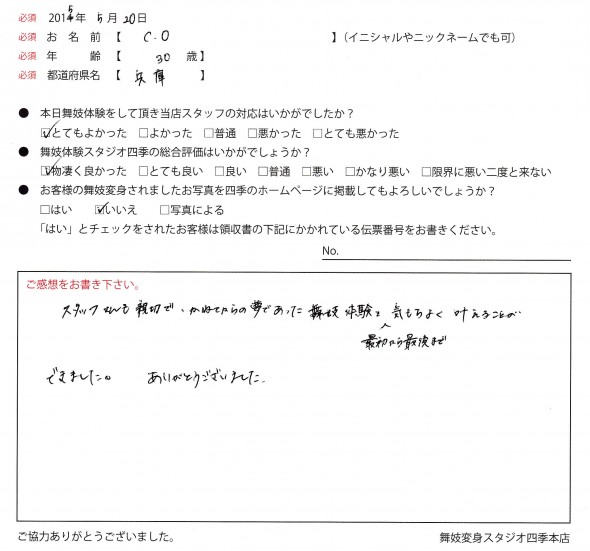 必須 2015年 5月 20日
必須 お 名 前 【 C.O 】(イニシャルやニックネームでも可)
必須 年 齢 【 30 歳】
必須 都道府県名 【 兵庫 】
● 本日舞妓体験をして頂き当店スタッフの対応はいかがでしたか?
☑とてもよかった □よかった □普通 □悪かった □とても悪かった
● 舞妓体験スタジオ四季の総合評価はいかがでしょうか?
☑物凄く良かった □とても良い □良い □普通 □悪い □かなり悪い □限界に悪い二度と来ない
● お客様の舞妓変身されましたお写真を四季のホームページに掲載してもよろしいでしょうか?
□はい ☑いいえ □写真による
「はい」とチェックをされたお客様は領収書の下記にかかれている伝票番号をお書きください。
No.
ご感想をお書き下さい。
スタッフさんも親切で、かねてからの夢であった舞妓体験を気もちよく叶えることが
最初から最後まで
できました。 ありがとうございました。
ご協力ありがとうございました。 舞妓変身スタジオ四季本店